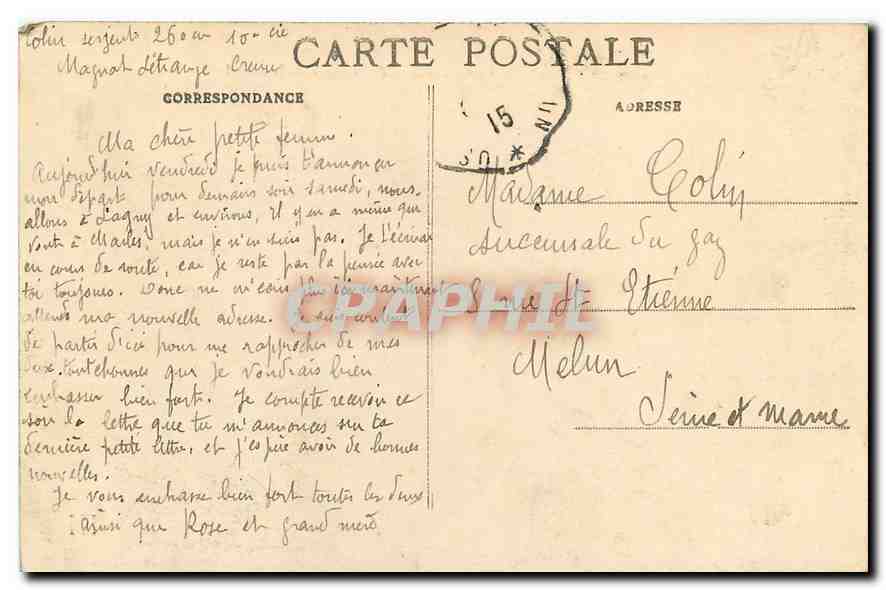 Colin sergent 260em 10me Cie
Magnat l'étrange Creuse
CARTE POSTALE
CORRESPONDANCE
ADRESSE
15
Ma chère petite femme.
Aujourd'hui vendredi je puis t'annoncer
mon départ pour demain soir samedi, nous
allons à Lagny et environs, il y en a même qui
vont à Meaux, mais je n'en suis pas. Je t'écrirai
en cours de route, car je reste par la pensée avec
toi toujours. Donc ne m'écris plus ici maintenant
attends ma nouvelle adresse. Je suis content
de partir d'ici pour me rapprocher de mes
deux que je voudrais bien
embrasser bien fort. Je compte recevoir ce
soir la lettre que tu m'annonces sur ta
dernière petite lettre, et j'espère avoir de bonnes
nouvelles.
Je vous embrasse bien fort toutes les deux
ainsi que Rose et grand mère
Madame Colin
Succursale du gaz
5 rue St Etienne
Melun
Seine et Marne
CRAPHIL